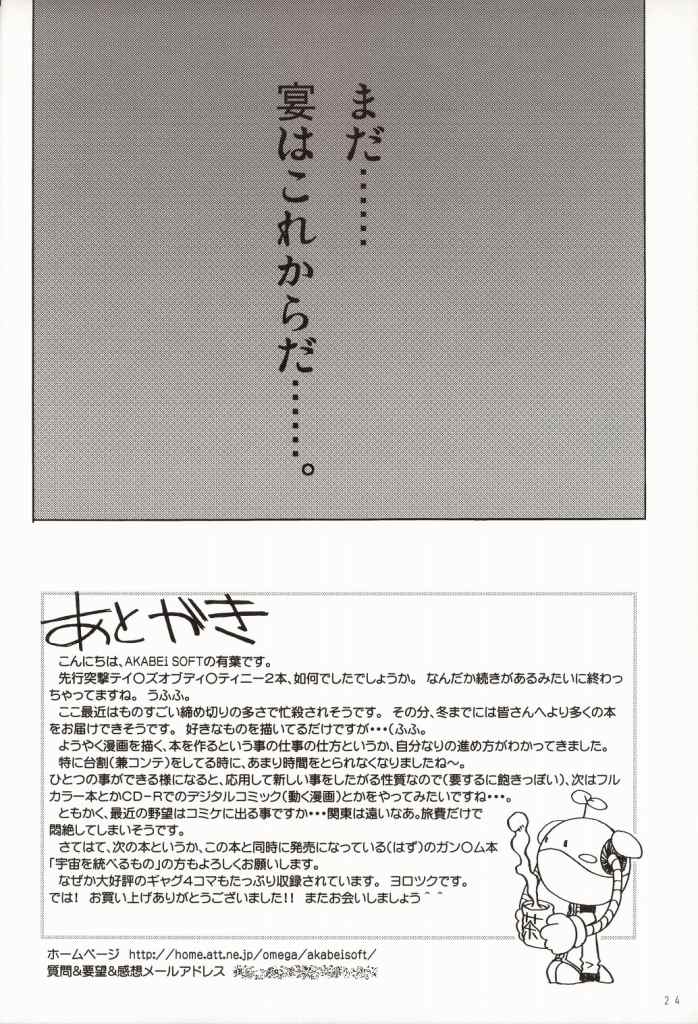 まだ……
宴はこれからだ……。
あとがき
こんにちは、AKABEi SOFTの有葉です。
先行突撃テイ〇ズオブディ〇ティニー2本、如何でしたでしょうか。 なんだか続きがあるみたいに終わっ
ちゃってますね。 うふふ。
ここ最近はものすごい締め切りの多さで忙殺されそうです。 その分、冬までには皆さんへより多くの本
をお届けできそうです。 好きなものを描いてるだけですが・・・(ふふ。
ようやく漫画を描く、本を作るという事の仕事の仕方というか、自分なりの進め方がわかってきました。
特に台割(兼コンテ)をしてる時に、あまり時間をとられなくなりましたね～。
ひとつの事ができる様になると、応用して新しい事をしたがる性質なので(要するに飽きっぽい)、次はフル
カラー本とかCD-Rでのデジタルコミック(動く漫画)とかをやってみたいですね・・・。
ともかく、最近の野望はコミケに出る事ですか・・・関東は遠いなあ。旅費だけで
悶絶してしまいそうです。
さてはて、次の本というか、この本と同時に発売になっている(はず)のガン〇ム本
「宇宙を統べるもの」の方もよろしくお願いします。
なぜか大好評のギャグ4コマもたっぷり収録されています。 ヨロツクです。
では! お買い上げありがとうございました!! またお会いしましょう＾＾
茶
ホームページ http://home.att.ne.jp/omega/akabeisoft/
質問&要望&感想メールアドレス
24